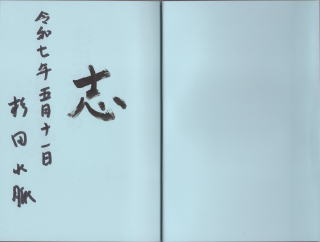 志
令和七年五月十一日
杉田水脈